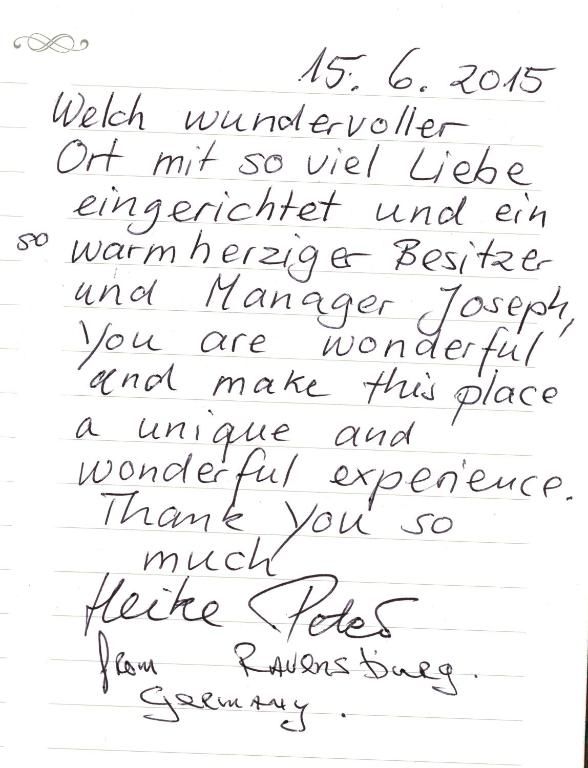 15. 6. 2015
Welch wundervoller
Ort mit so viel Liebe
eingerichtet und ein
so warmherziger Besitzer
und Manager Joseph,
You are wonderful
and make this place
a unique and
wonderful experience.
Thank You so
much
Heike
from Ravensburg.
Germany.